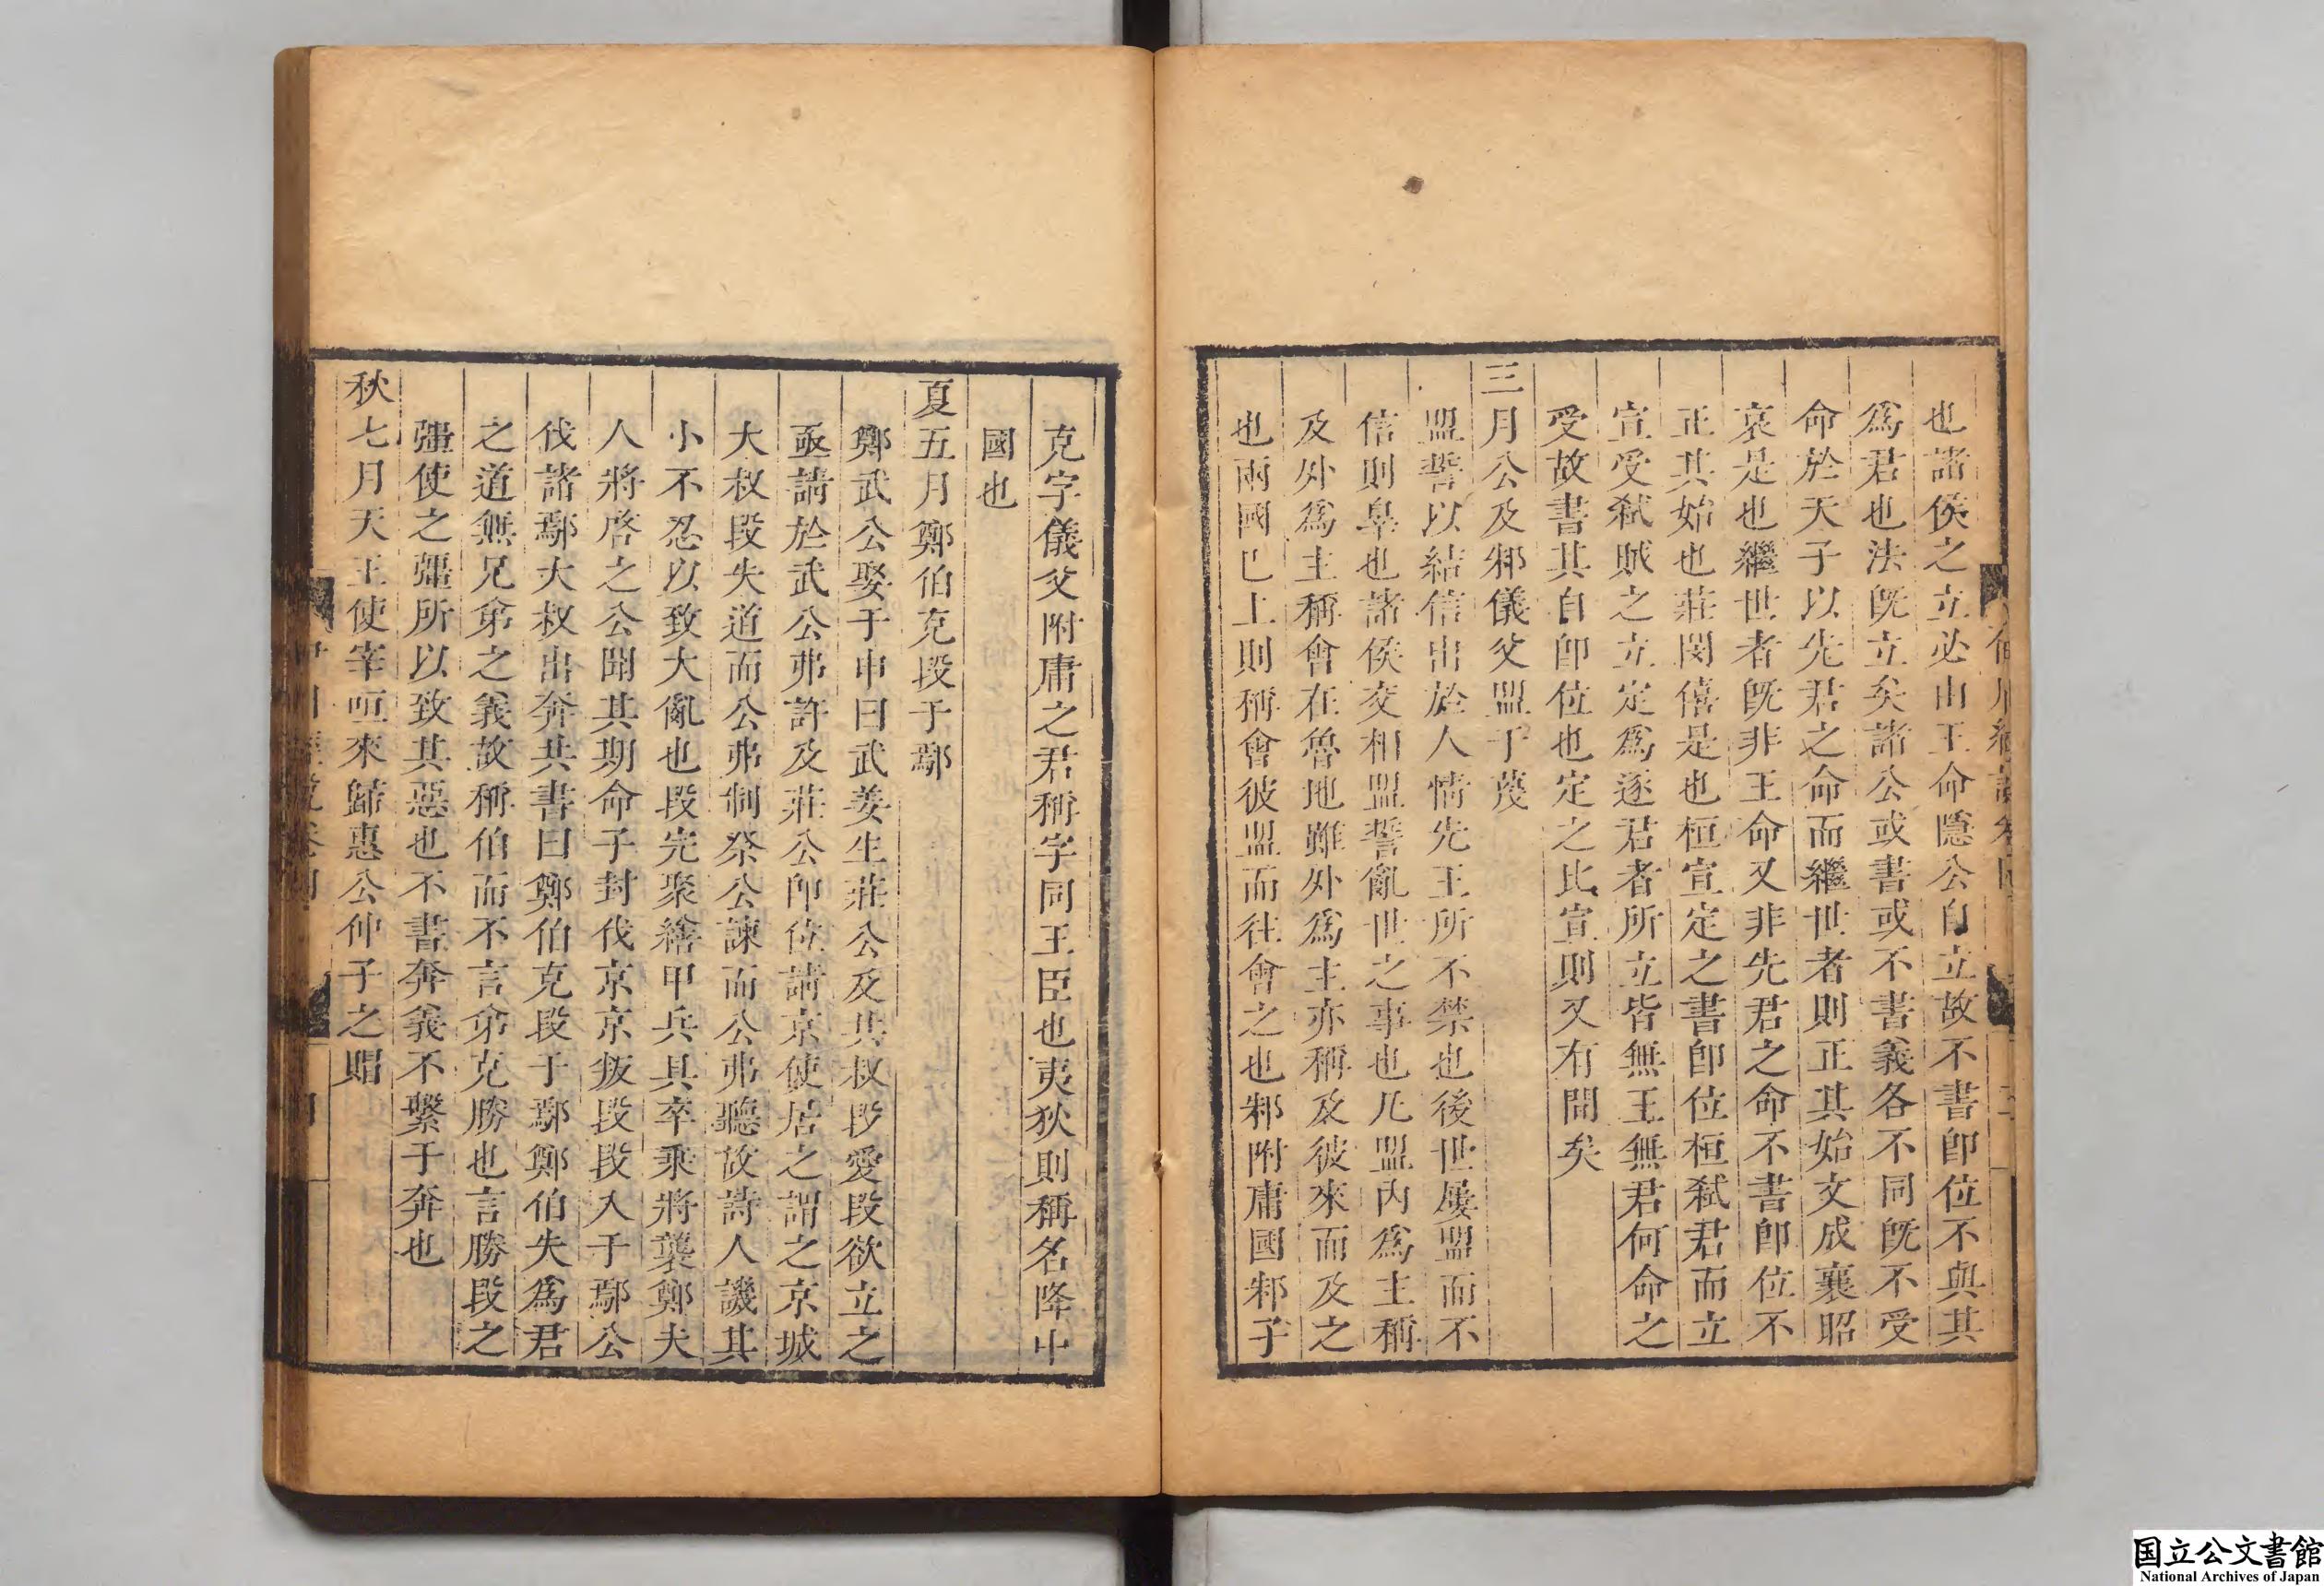 也諸侯之立必由王命隱公自立故不書卽位不與其
爲君也法旣立矣諸公或書或不書義各不同旣不受
命於天子以先君之命而繼世者則正其始文成襄昭
哀是也繼世者旣非王命又非先君之命不書卽位不
正其始也莊閔僖是也桓宣定之書卽位桓弑君而立
宣受弑賊之立定爲逐君者所立皆無王無君何命之
受故書其自卽位也定之比宣則又有閒矣
三月公及邾儀父盟于蔑
盟誓以結信出於人情先王所不禁也後世屢盟而不
信則辠也諸侯交相盟誓亂世之事也凡盟內爲主稱
及外爲主稱會在魯地雖外爲主亦稱及彼來而及之
也兩國已上則稱會彼盟而往會之也邾附庸國邾子
克字儀父附庸之君稱字同王臣也夷狄則稱名降中
國也
夏五月鄭伯克段于鄢
鄭武公娶于申曰武姜生莊公及共叔段愛段欲立之
亟請於武公弗許及莊公卽位請京使居之謂之京城
大叔段失道而公弗制祭公諫而公弗聽故詩人譏其
小不忍以致大亂也段完聚繕甲兵具卒乘將襲鄭夫
人將啓之公聞其期命子封伐京京叛段段入于鄢公
伐諸鄢大叔出奔共書曰鄭伯克段于鄢鄭伯失爲君
之道無兄弟之義故稱伯而不言弟克勝也言勝段之
彊使之彊所以致其惡也不書奔義不繫于奔也
秋七月天王使宰咺來歸惠公仲子之賵
国立公文書館
National Archives of Japan